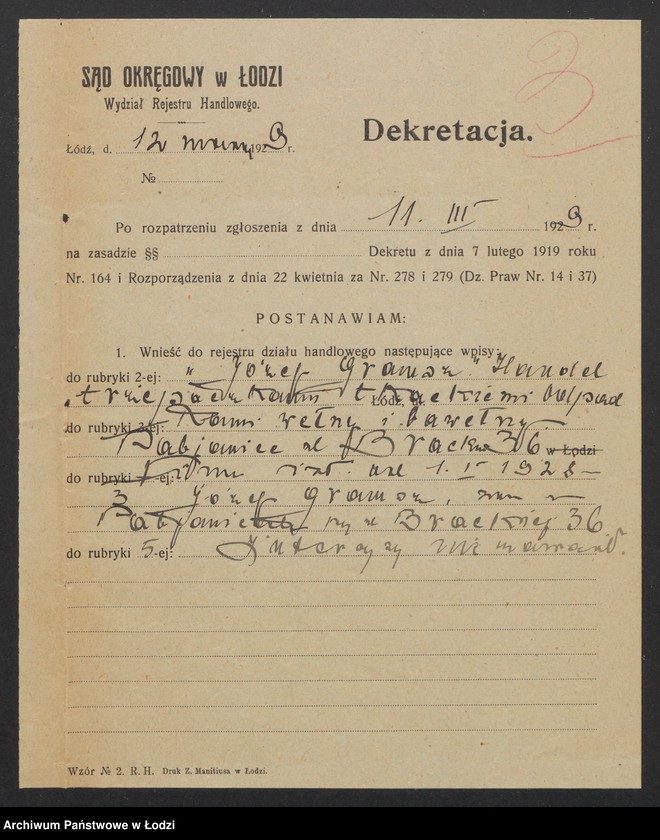 SĄD OKRĘGOWY w ŁODZI
Wydział Rejestru Handlowego.
3
Dekretacja.
Łódź, d. 12 marca 1929 r.
№
Po rozpatrzeniu zgłoszenia z dnia 11. III 1929 r.
na zasadzie §§ Dekretu z dnia 7 lutego 1919 roku
Nr. 164 i Rozporządzenia z dnia 22 kwietnia za Nr. 278 i 279 (Dz. Praw Nr. 14 i 37)
POSTANAWIAM:
1. Wnieść do rejestru działu handlowego następujące wpisy:
do rubryki 2-ej: „Józef Gramsz" Handel
tkackiemi odpad
Łódź, ul.
do rubryki 3-ej: kami wełny i bawełny
Pabjanice ul Bracka 36 w Łodzi
do rubryki -ej: Firma istn. od 1. I 1928 –
3 Józef Gramsz, zam w
Pabjanicach przy ul Brackiej 36
do rubryki 5-ej: Intercyzy nie zawarł.
Wzór № 2. R. H. Druk Z. Manitiusa w Łodzi.
Archiwum Państwowe w Łodzi